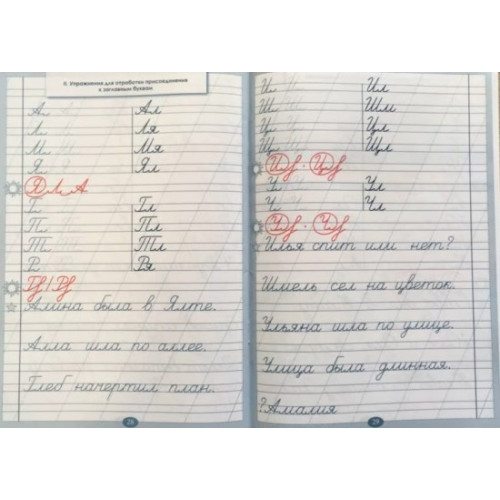 8. Упражнения для отработки присоединения
к заглавным буквам
А Ал
Л Ля
М Мя
Я Ял
Д Л А
Г Гл
П Пл
Т Тл
В Вя
Алина была в Ялте.
Алла шла по аллее.
Глеб начертил план.
28
И Ил
Ш Шм
Ц Цл
Щ Щл
У Ул
Ч Чл
Илья спит или нет?
Шмель сел на цветок.
Ульяна шла по улице.
Улица была длинная.
? Амалия
29